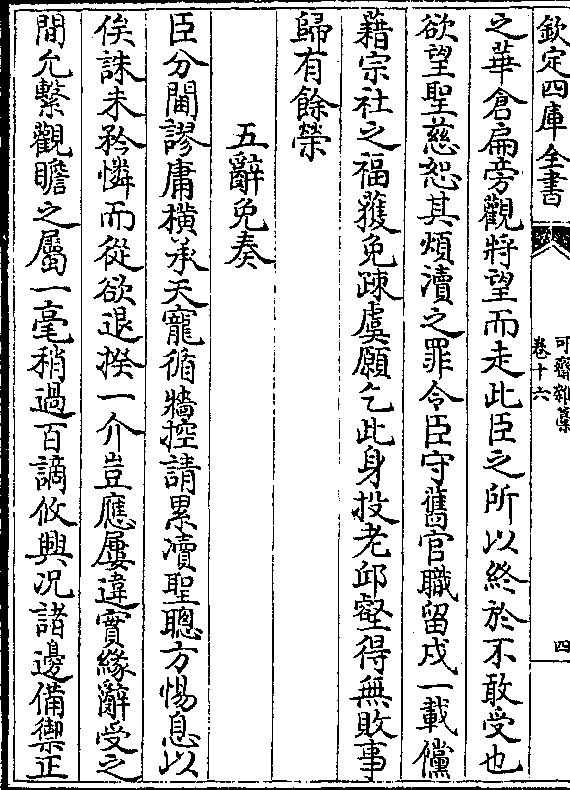 欽定四庫全書
可齋雜藁
卷十六
四
之華倉扁旁觀將望而走此臣之所以終於不敢受也
欲望聖慈恕其煩瀆之罪令臣守舊官職留戍一載儻
藉宗社之福獲免疎虞願乞此身投老邱壑得無敗事
歸有餘榮
五辭免奏
臣分閫謬庸橫承天寵循牆控請累瀆聖聰方惕息以
俟誅未矜憐而從欲退揆一介豈應屢違實緣辭受之
間允繫觀瞻之屬一毫稍過百謫攸興况諸邊備禦正